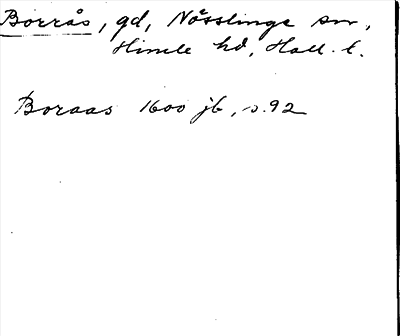 Borrås, gd, Nösslinge sn,
Himle hd, Hall. l.
Boraas 1600 jb, s. 92